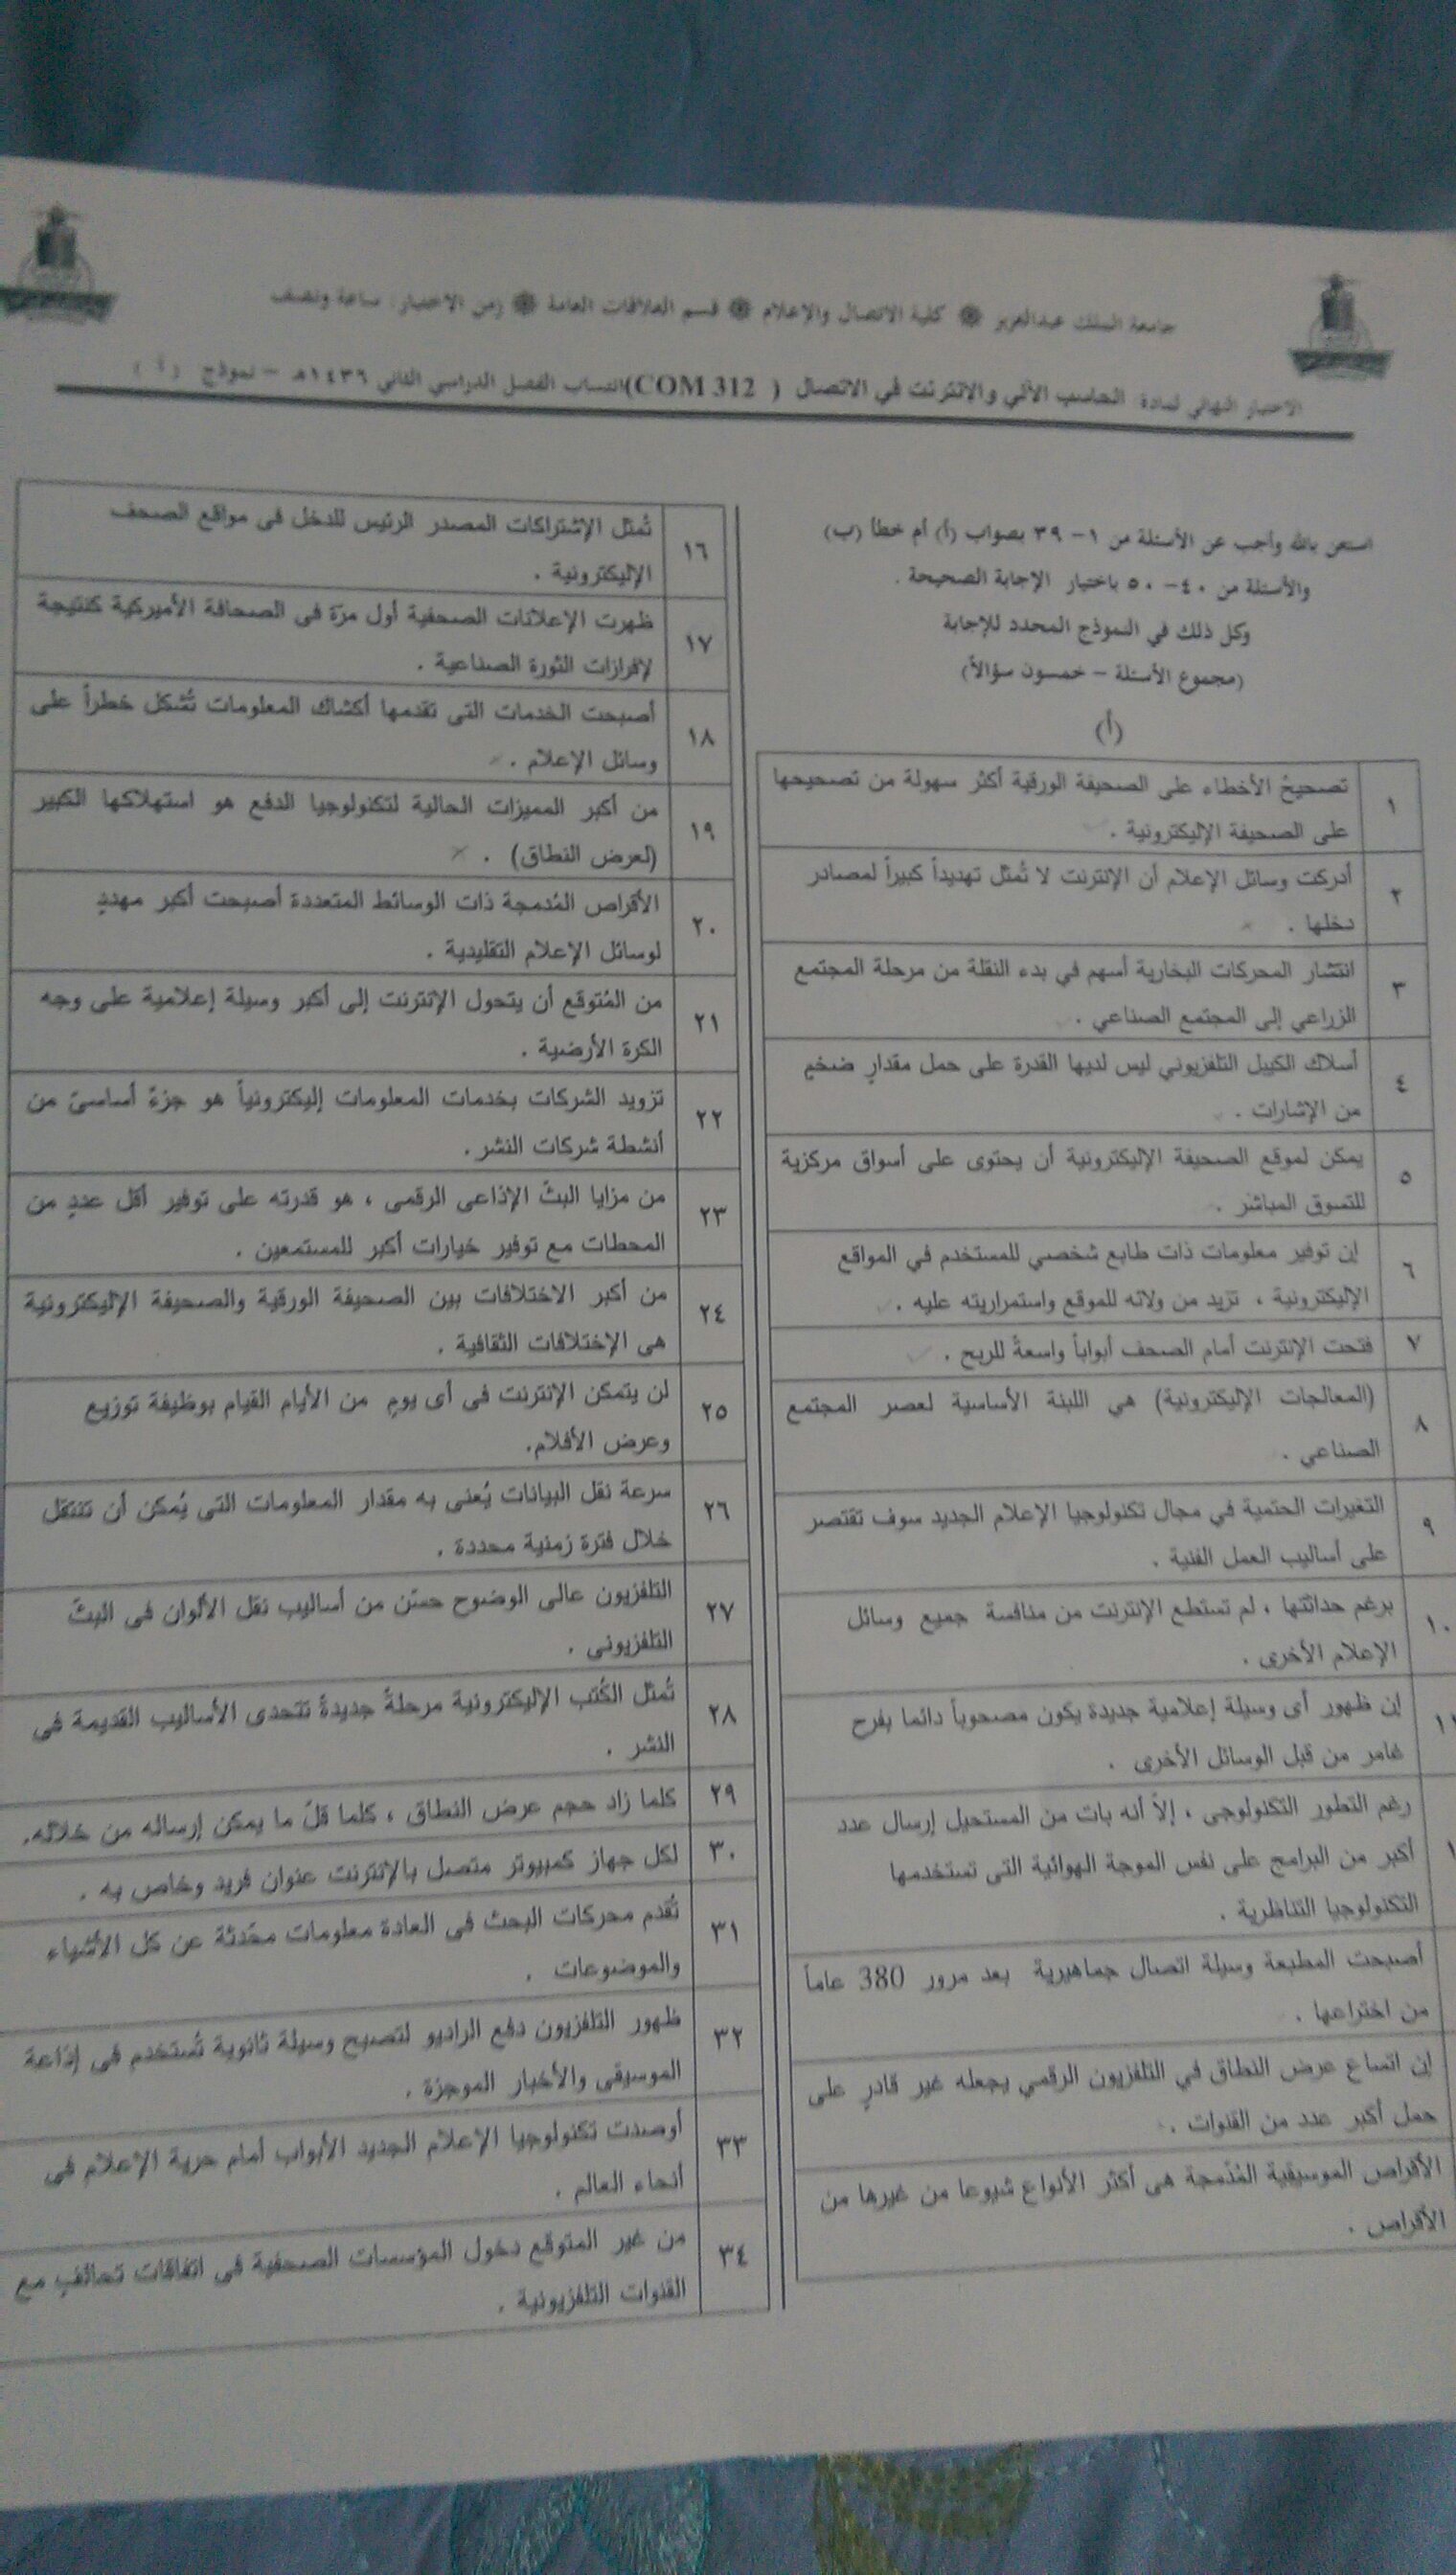 جامعة الملك عبدالعزيز ❁ كلية الاتصال والإعلام ❁ قسم العلاقات العامة ❁ زمن الاختبار: ساعة ونصف
الاختبار النهائي لمادة: الحاسب الآلي والانترنت في الاتصال ( COM 312) انتساب الفصل الدراسي الثاني ١٤٣٦هـ – نموذج ( أ )
استعن بالله وأجب عن الأسئلة من ١– ٣٩ بصواب (أ) أم خطأ (ب)
والأسئلة من ٤٠– ٥٠ باختيار الإجابة الصحيحة .
وكل ذلك في النموذج المحدد للإجابة
(مجموع الأسئلة – خمسون سؤالاً)
(أ)
١ تصحيحُ الأخطاء على الصحيفة الورقية أكثر سهولة من تصحيحها
على الصحيفة الإليكترونية .
٢ أدركت وسائل الإعلام أن الإنترنت لا تُمثل تهديداً كبيراً لمصادر
دخلها .
٣ انتشار المحركات البخارية أسهم في بدء النقلة من مرحلة المجتمع
الزراعي إلى المجتمع الصناعي .
٤ أسلاك الكيبل التلفزيوني ليس لديها القدرة على حمل مقدارٍ ضخمٍ
من الإشارات .
٥ يمكن لموقع الصحيفة الإليكترونية أن يحتوى على أسواق مركزية
للتسوق المباشر .
٦ إن توفير معلومات ذات طابع شخصي للمستخدم في المواقع
الإليكترونية ، تزيد من ولائه للموقع واستمراريته عليه .
٧ فتحت الإنترنت أمام الصحف أبواباً واسعةً للربح .
٨ (المعالجات الإليكترونية) هي اللبنة الأساسية لعصر المجتمع
الصناعي .
٩ التغيرات الحتمية في مجال تكنولوجيا الإعلام الجديد سوف تقتصر
على أساليب العمل الفنية .
١٠ برغم حداثتها ، لم تستطع الإنترنت من منافسة جميع وسائل
الإعلام الأخرى .
١١ إن ظهور أى وسيلة إعلامية جديدة يكون مصحوباً دائما بفرح
غامر من قبل الوسائل الأخرى .
رغم التطور التكنولوجى ، إلاّ أنه بات من المستحيل إرسال عدد
١ أكبر من البرامج على نفس الموجة الهوائية التى تستخدمها
التكنولوجيا التناظرية .
أصبحت المطبعة وسيلة اتصال جماهيرية بعد مرور 380 عاماً
من اختراعها .
إن اتساع عرض النطاق في التلفزيون الرقمي يجعله غير قادرٍ على
حمل أكبر عدد من القنوات .
الأقراص الموسيقية المُدمجة هى أكثر الألواع شيوعا من غيرها من
الأقراص .
١٦ تُمثل الإشتراكات المصدر الرئيس للدخل فى مواقع الصحف
الإليكترونية .
١٧ ظهرت الإعلانات الصحفية أول مرّة فى الصحافة الأميركية كنتيجة
لإفرازات الثورة الصناعية .
١٨ أصبحت الخدمات التى تقدمها أكشاك المعلومات تُشكل خطراً على
وسائل الإعلام .
١٩ من أكبر المميزات الحالية لتكنولوجيا الدفع هو استهلاكها الكبير
(لعرض النطاق) .
٢٠ الأقراص المُدمجة ذات الوسائط المتعددة أصبحت أكبر مهددٍ
لوسائل الإعلام التقليدية .
٢١ من المُتوقع أن يتحول الإنترنت إلى أكبر وسيلة إعلامية على وجه
الكرة الأرضية .
٢٢ تزويد الشركات بخدمات المعلومات إليكترونياً هو جزءٌ أساسىّ من
أنشطة شركات النشر.
٢٣ من مزايا البثّ الإذاعى الرقمى ، هو قدرته على توفير أقل عددٍ من
المحطات مع توفير خيارات أكبر للمستمعين .
٢٤ من أكبر الاختلافات بين الصحيفة الورقية والصحيفة الإليكترونية
هى الإختلافات الثقافية .
٢٥ لن يتمكن الإنترنت فى أى يومٍ من الأيام القيام بوظيفة توزيع
وعرض الأفلام.
٢٦ سرعة نقل البيانات يُعنى به مقدار المعلومات التى يُمكن أن تنتقل
خلال فترة زمنية محددة .
٢٧ التلفزيون عالى الوضوح حسّن من أساليب نقل الألوان فى البثّ
التلفزيونى .
٢٨ تُمثل الكُتب الإليكترونية مرحلةً جديدةً تتحدى الأساليب القديمة فى
النشر .
٢٩ كلما زاد حجم عرض النطاق ، كلما قلّ ما يمكن إرساله من خلاله.
٣٠ لكل جهاز كمبيوتر متصل بالإنترنت عنوان فريد وخاص به .
٣١ تُقدم محركات البحث فى العادة معلومات محّدثة عن كل الأشياء
والموضوعات .
٣٢ ظهور التلفزيون دفع الراديو لتصبح وسيلة ثانوية تُستخدم فى إذاعة
الموسيقى والأخبار الموجزة .
٣٣ أوصدت تكنولوجيا الإعلام الجديد الأبواب أمام حرية الإعلام فى
أنحاء العالم .
٣٤ من غير المتوقع دخول المؤسسات الصحفية فى اتفاقات تحالفٍ مع
القنوات التلفزيونية .